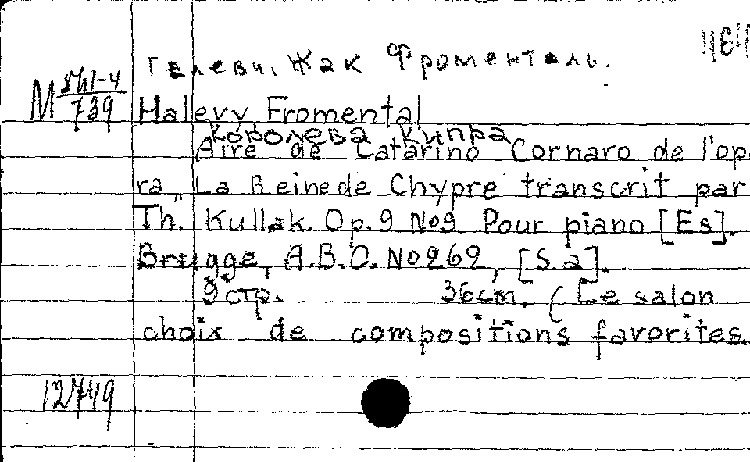 Галеви, Жак Фроменталь.
М 541-4
739
Halevy Fromental
Королева Кипра
Aire de Catarino Cornaro de l'ope
ra, La Reine de Chypre transcrit par
Th. Kullak. Op. 9 №9 Pour piano [Es].
Brügge, A.B.O. №269, [S.a].
9 стр. 36 cm. (Le salon
choix de compositions favorites.
12749